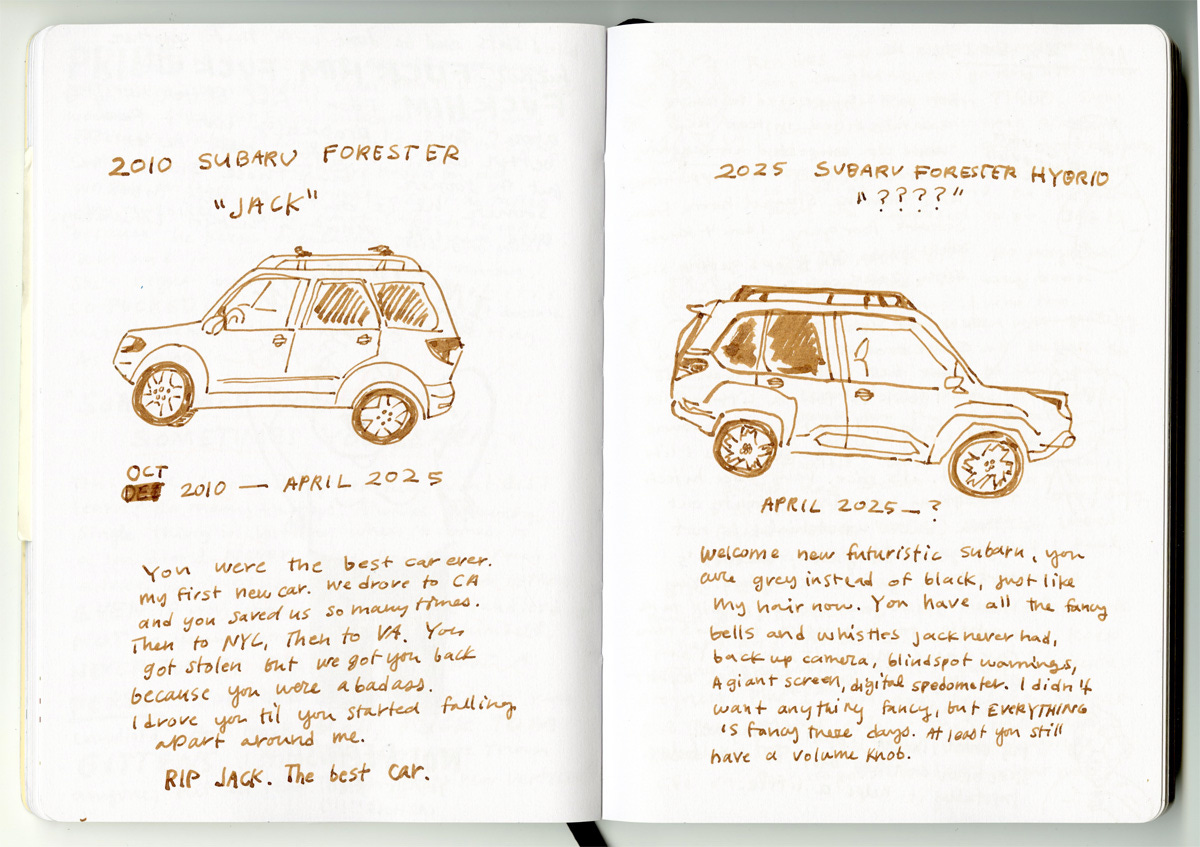 2010 SUBARU FORESTER
"JACK"
OCT
DEC 2010 — APRIL 2025
You were the best car ever.
my first new car. we drove to CA
and you saved us so many times.
Then to NYC, Then to VA. You
got stolen but we got you back
because you were a badass.
I drove you til you started falling
apart around me.
RIP JACK. The best car.
2025 SUBARU FORESTER HYBRID
"????"
APRIL 2025 — ?
Welcome new futuristic subaru, you
are grey instead of black, just like
my hair now. You have all the fancy
bells and whistles jack never had,
back up camera, blindspot warnings,
A giant screen, digital spedometer. I didn't
want anything fancy, but EVERYTHING
is fancy these days. At least you still
have a volume knob.